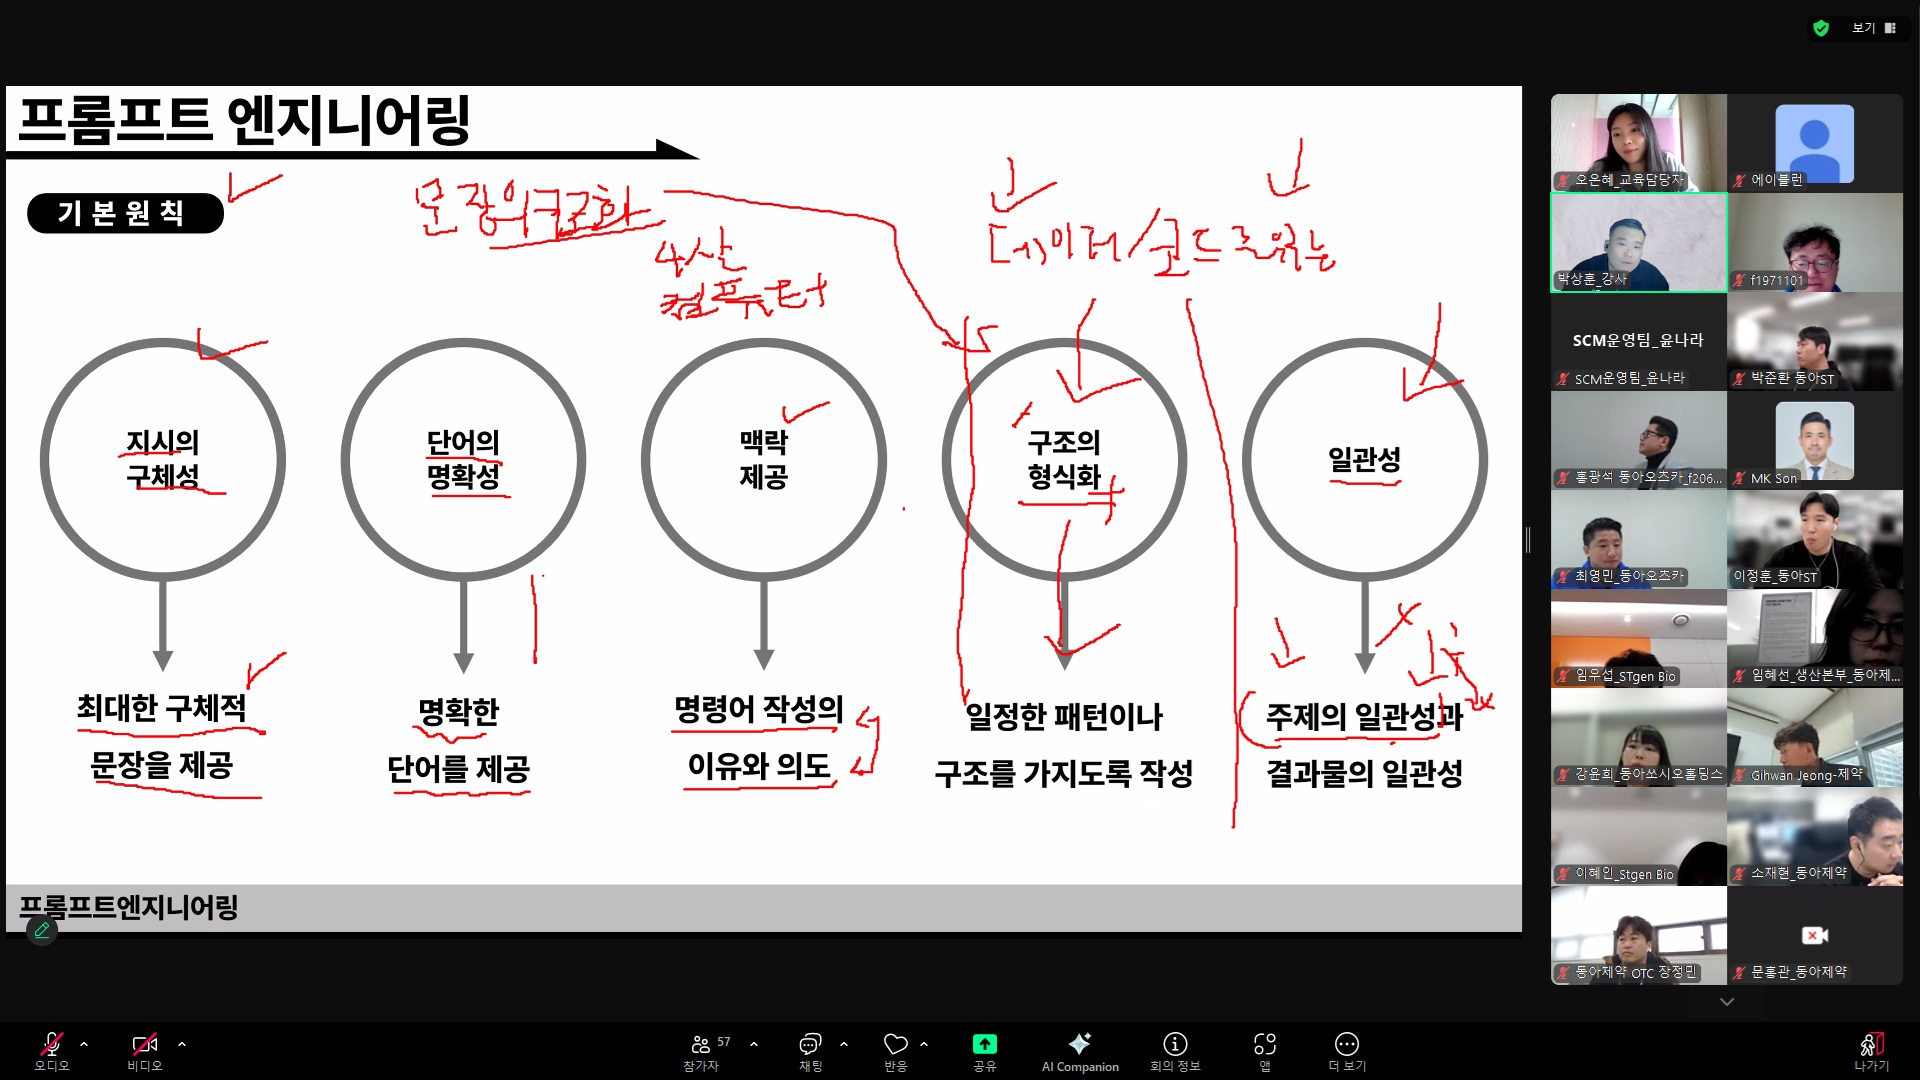 보기
프롬프트 엔지니어링
기본원칙
문장의 구조화
컴퓨터
데이터/코드로 읽는
지시의
구체성
단어의
명확성
맥락
제공
구조의
형식화
일관성
최대한 구체적
문장을 제공
명확한
단어를 제공
명령어 작성의
이유와 의도
일정한 패턴이나
구조를 가지도록 작성
주제의 일관성과
결과물의 일관성
프롬프트엔지니어링
오은혜_교육담당자
에이블런
박상훈_강사
f1971101
SCM운영팀_윤나라
SCM운영팀_윤나라
박준환 동아ST
홍광석 동아오츠카_f206...
MK Son
최영민_동아오츠카
이정훈_동아ST
임우섭_STgen Bio
임혜선_생산본부_동아제...
강윤희_동아쏘시오홀딩스
Gihwan Jeong-제약
이혜인_Stgen Bio
소재현_동아제약
동아제약 OTC 장정민
문홍관_동아제약
오디오
비디오
57
참가자
채팅
반응
공유
AI Companion
회의 정보
앱
더 보기
나가기